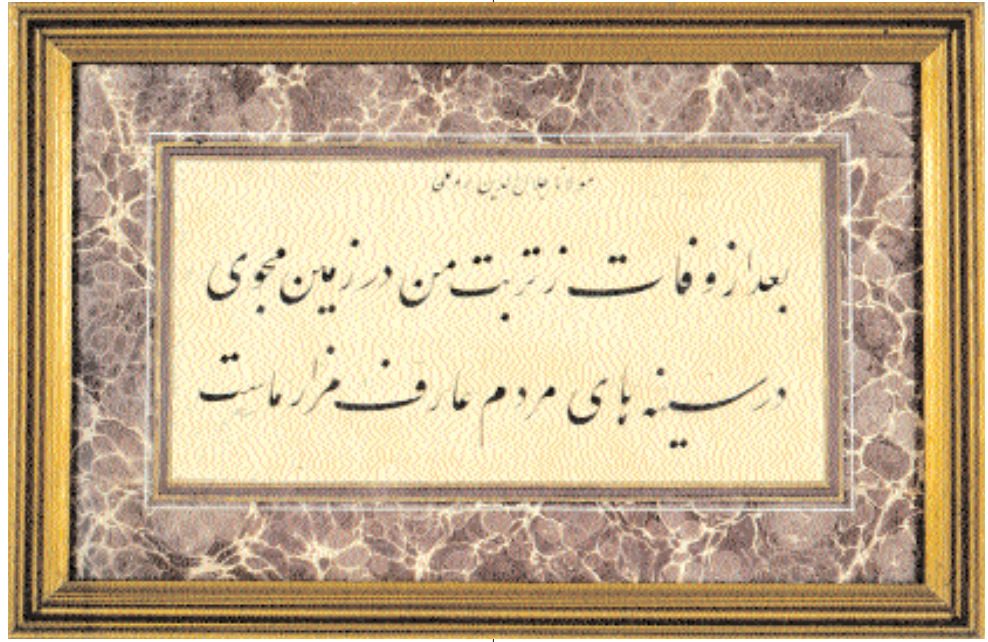 مولانا جلال الدین رومی
بعد از وفات ز تربت من در زمین مجوی
در سینه های مردم عارف مزار ماست